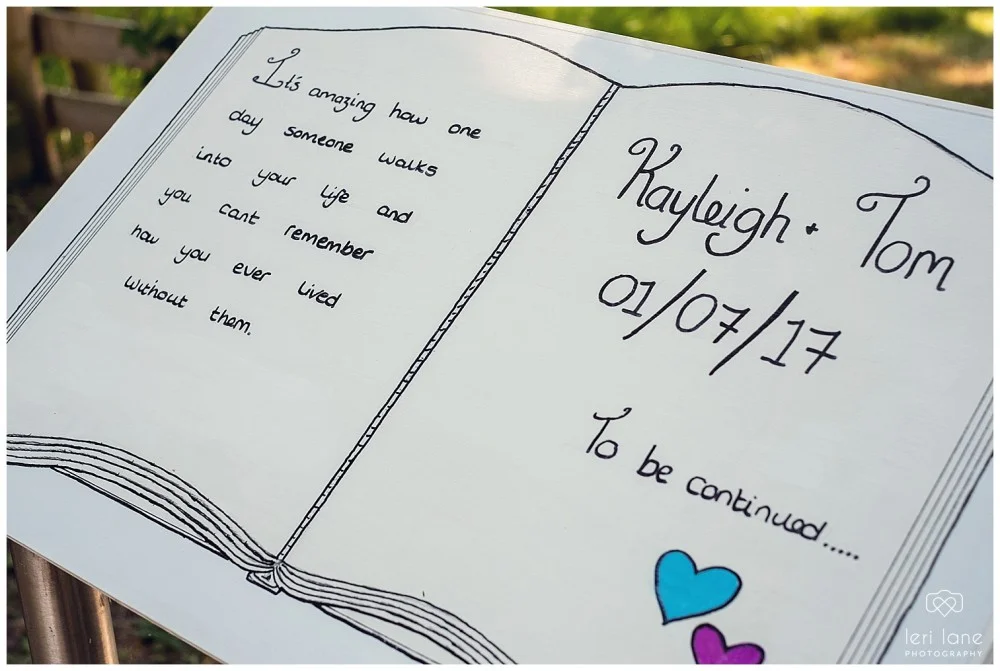 It's amazing how one
day someone walks
into your life and
you cant remember
how you ever lived
without them.
Kayleigh + Tom
01/07/17
To be continued.....
leri lane
PHOTOGRAPHY